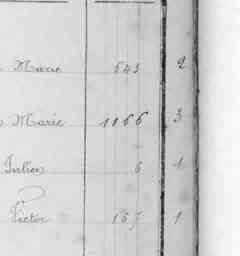 Marie 543 2
Marie 1166 3
Julien 6 1
Victor 167 1